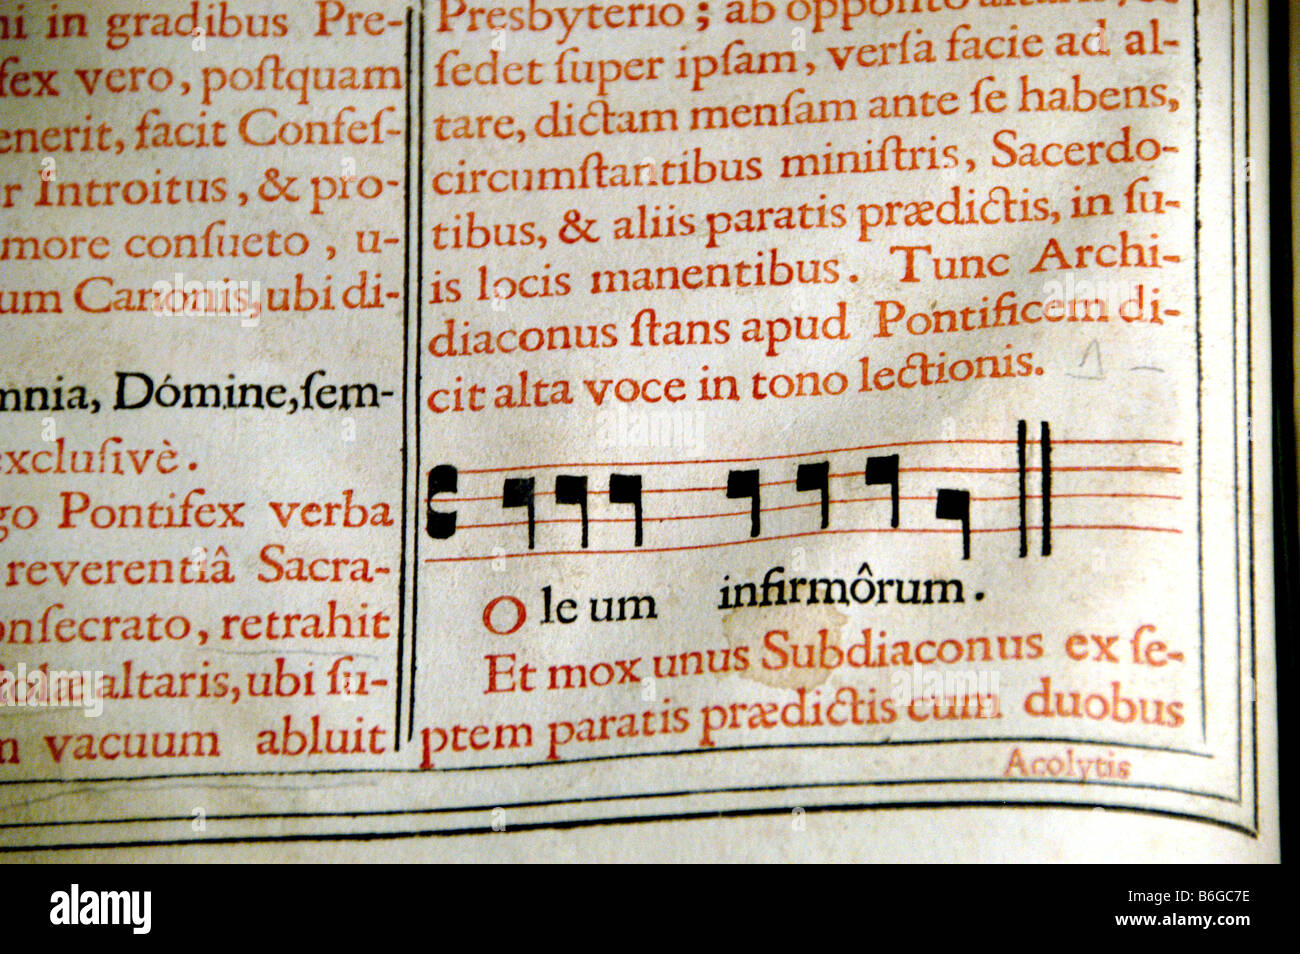 ni in gradibus Pre-
fex vero, poſtquam
enerit, facit Confeſ-
r Introitus, & pro-
more conſueto, u-
um Canonis, ubi di-
mnia, Dómine, ſem-
excluſivè.
go Pontifex verba
reverentiâ Sacra-
onſecrato, retrahit
ſolæ altaris, ubi ſu-
n vacuum abluit
Presbyterio; ab oppoſito altaris, &
ſedet ſuper ipſam, verſà facie ad al-
tare, dictam menſam ante ſe habens,
circumſtantibus miniſtris, Sacerdo-
tibus, & aliis paratis prædictis, in ſu-
is locis manentibus. Tunc Archi-
diaconus ſtans apud Pontificem di-
cit alta voce in tono lectionis.
O le um infirmôrum.
Et mox unus Subdiaconus ex ſe-
ptem paratis prædictis cum duobus
Acolytis
alamy
Image ID: B6GC7E
www.alamy.com